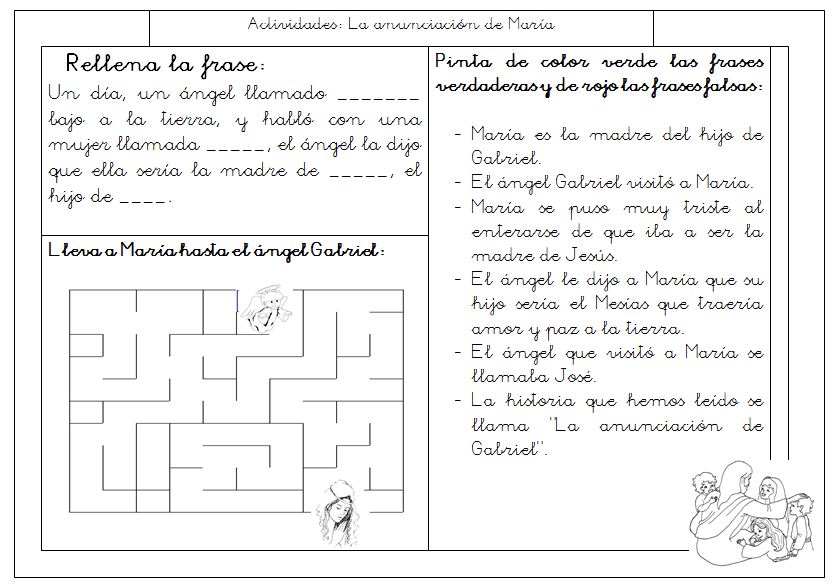 Actividades: La anunciación de María
Rellena la frase:
Un día, un ángel llamado _______
bajo a la tierra, y habló con una
mujer llamada _____, el ángel la dijo
que ella sería la madre de _____, el
hijo de ____.
Lleva a María hasta el ángel Gabriel:
Pinta de color verde las frases
verdaderas y de rojo las frases falsas:
- María es la madre del hijo de
Gabriel.
- El ángel Gabriel visitó a María.
- María se puso muy triste al
enterarse de que iba a ser la
madre de Jesús.
- El ángel le dijo a María que su
hijo sería el Mesías que traería
amor y paz a la tierra.
- El ángel que visitó a María se
llamaba José.
- La historia que hemos leído se
llama "La anunciación de
Gabriel".